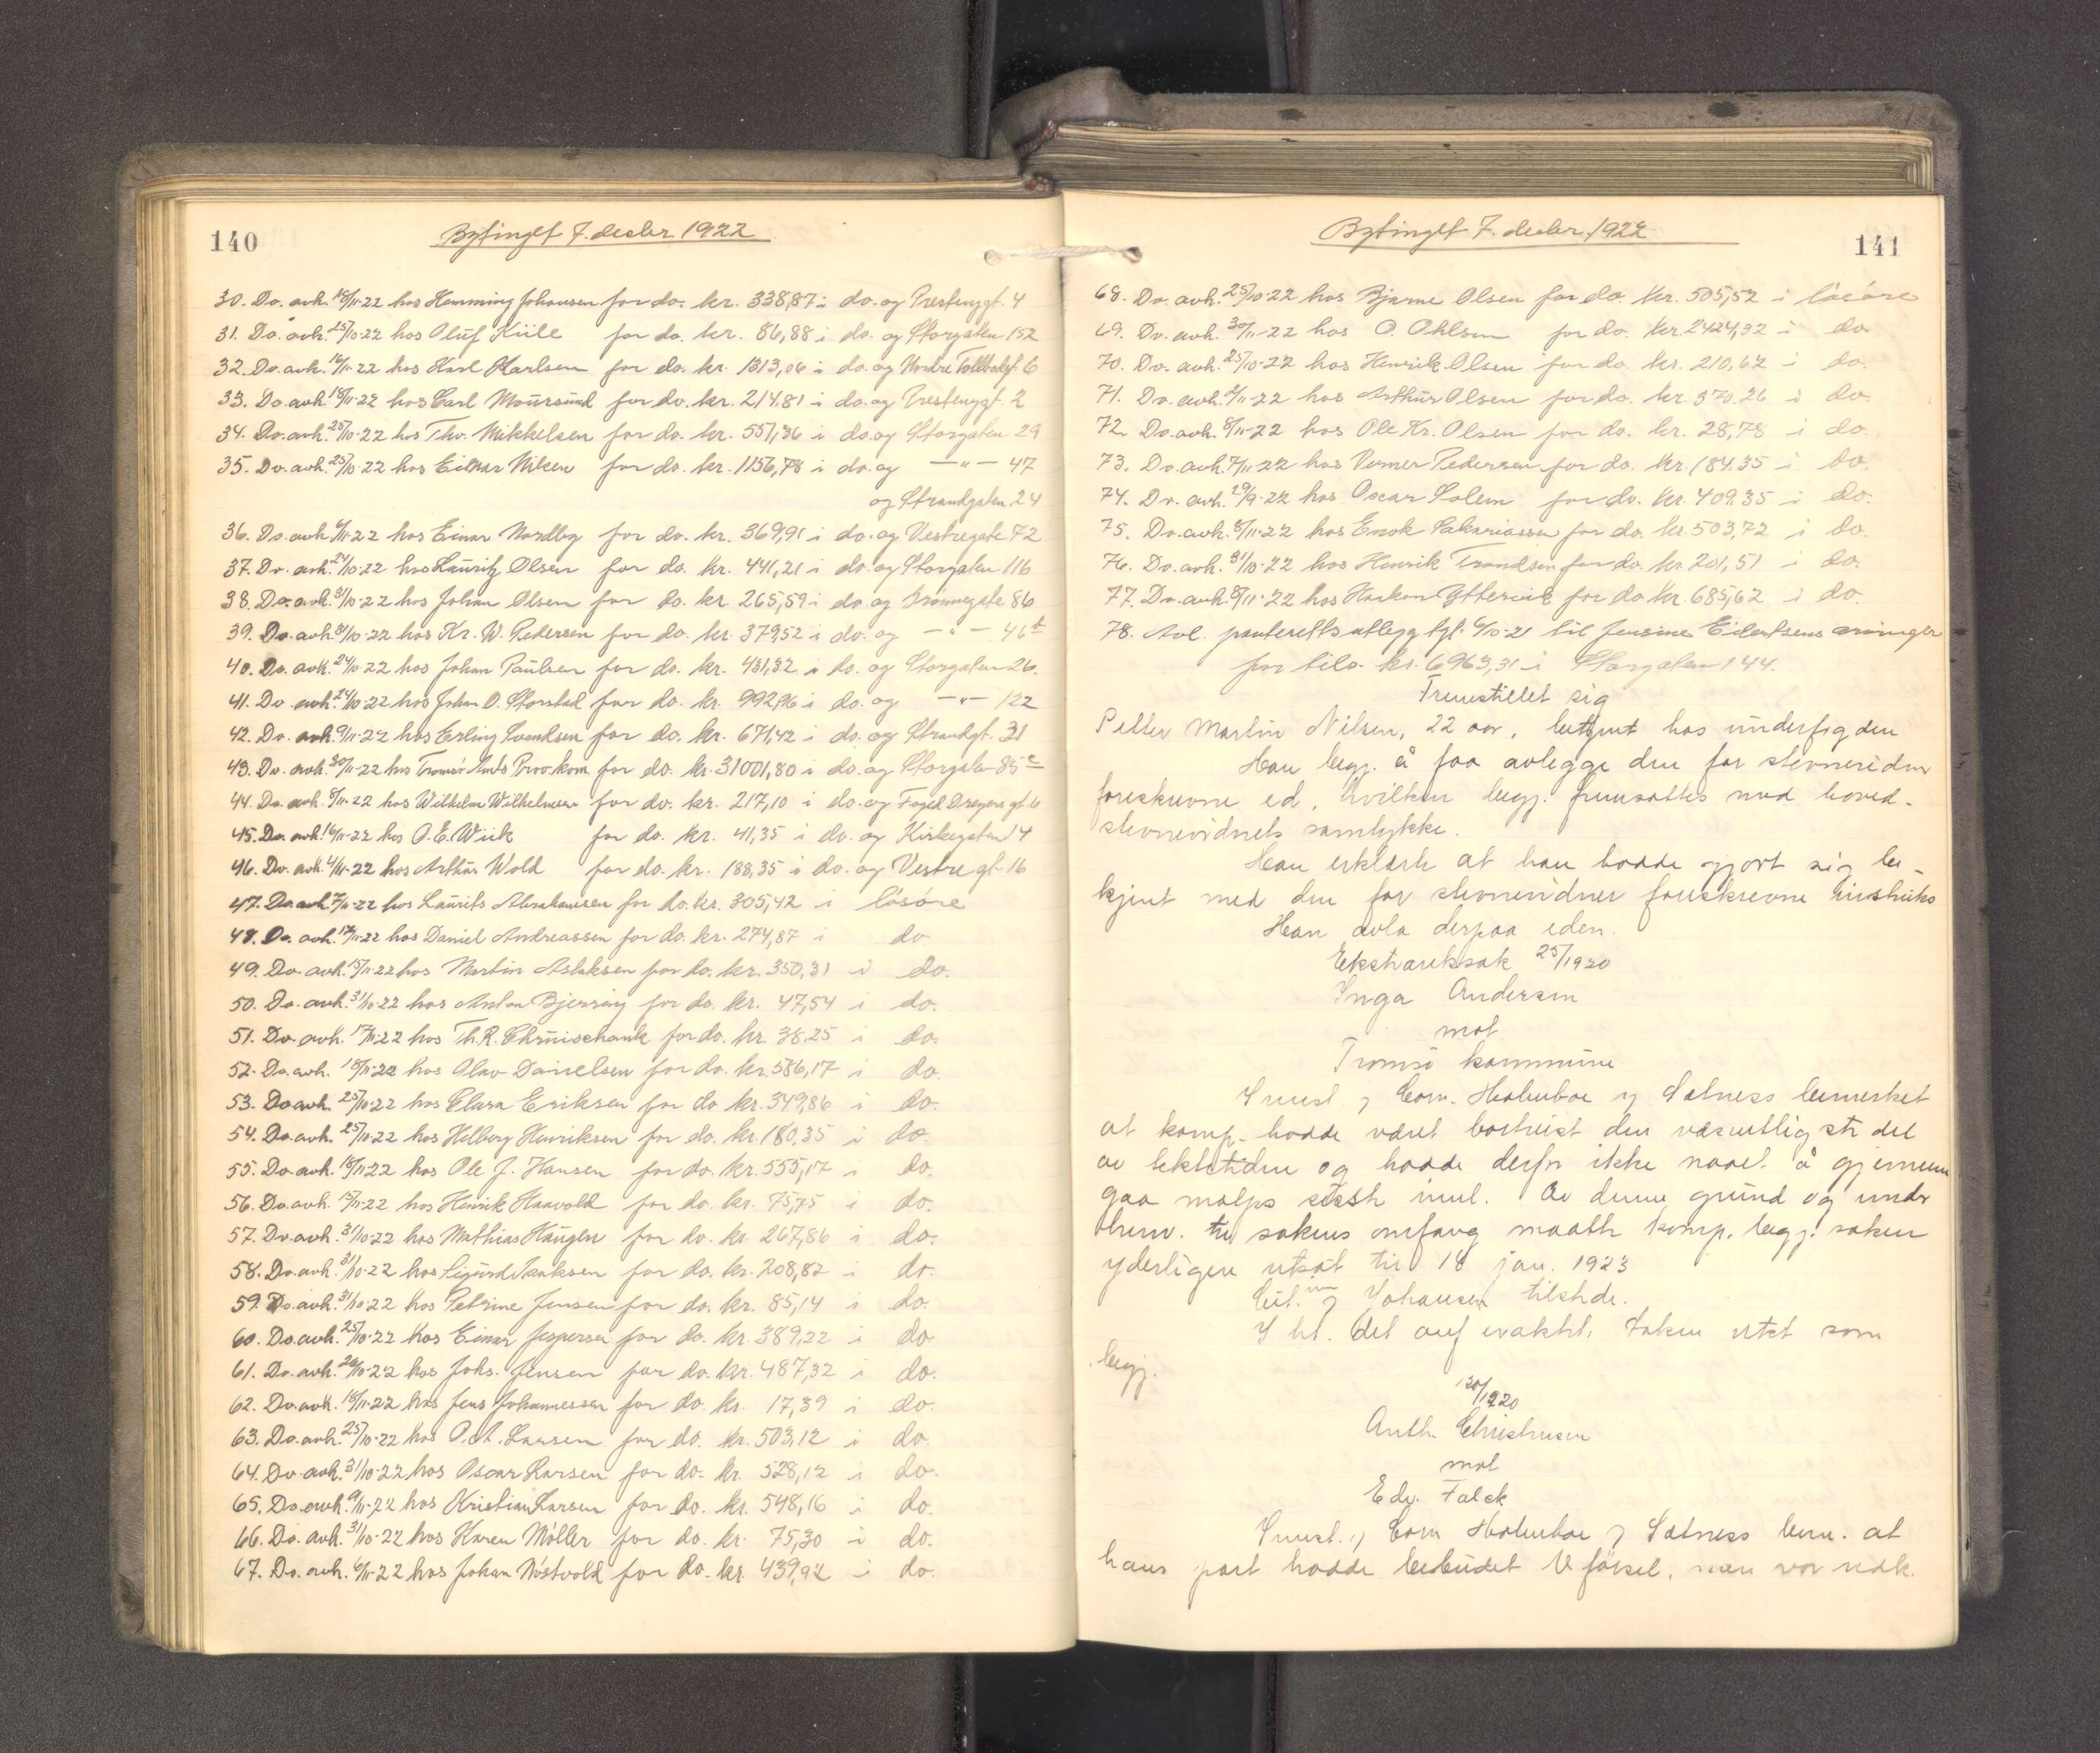 140
Bytinget 7. decbr. 1922
30. Do. avh. 18/11-22 hos Hemming Johansen for do. kr. 338,87 i do. og Prestenggt. 4
31. Do. avh. 25/10-22 hos Oluf Kiile for do. kr. 86,88 i do. og Storgaten 152
32. Do. avh. 16/11-22 hos Karl Karlsen for do. kr. 1313,06 i do. og Nordre Tollbodgt. 6
33. Do. avh. 18/11-22 hos Carl Moursund for do. kr. 214.81 i do. og Prestenggt. 2
34. Do. avh. 25/10-22 hos Thv. Mikkelsen for do. kr. 557,36 i do. og Storgaten 29
35. Do. avh. 25/10-22 hos Einar Nilsen for do. kr. 1156,78 i do. og —"— 47
og Strandgaten 24
36. Do. avh. 4/11-22 hos Einar Nordby for do. kr. 369,91 i do. og Vestregate 72
37. Do. avh. 24/10-22 hos Lauritz Olsen for do. kr. 441,21 i do. og Storgaten 116
38. Do. avh. 31/10-22 hos Johan Olsen for do. kr. 265,59 i do. og Grønnegate 86
39. Do. avh. 31/10-22 hos Kr. W. Pedersen for do. kr. 379,52 i do. og —"— 46
40. Do. avh. 24/10-22 hos Johan Paulsen for do. kr. 431,32 i do. og Storgaten 26.
41. Do. avh. 24/10-22 hos Johan O. Storstad for do. kr. 992,96 i do. og —"— 122
42. Do. avh. 9/11-22 hos Erling Svendsen for do. kr. 671,42 i do. og Strandgt. 31
43. Do. avh. 30/11-22 hos Tromsö Amts Prov.kom for do. kr. 31001,80 i do. og Storgaten 85 c
44. Do. avh. 8/11-22 hos Wilhelm Wilhelmsen for do. kr. 217,10 i do. og Foged Dreyers gt. 6
45. Do. avh. 16/11-22 hos O. E. Wiik for do. kr. 41,35 i do. og Kirkegaten 14
46. Do. avh. 4/11-22 hos Arthur Wold for do. kr. 188,35 i do. og Vestre gt. 16
47. Do. avh. 7/11-22 hos Laurits Abrahamsen for do. kr. 305,42 i lösöre
48. Do. avh. 17/11-22 hos Daniel Andreassen for do. kr. 274,87 i do
49. Do. avh. 15/11-22 hos Martin Aslaksen for do. kr. 350,31 i do.
50. Do. avh. 31/10-22 hos Anton Bjerring for do. kr. 47,54 i do.
51. Do. avh. 17/11-22 hos Th. R. for do. kr. 38.25 i do.
52. Do. avh. 18/11-22 hos Olav Danielsen for do. kr. 586,17 i do.
53. Do avh. 25/10-22 hos Clara Eriksen for do kr. 349,86 i do.
54. Do. avh. 25/10-22 hos Helborg Henriksen for do. kr. 180,35 i do.
55. Do. avh. 18/11-22 hos Ole J. Hansen for do. kr. 555,17 i do.
56. Do. avh. 15/11-22 hos Henrik Haavold for do. kr. 75,75 i do.
57. Do. avh. 31/10-22 hos Mathias Haugen for do. kr. 267,86 i do.
58. Do. avh. 31/10-22 hos Sigurd Isaksen for do. kr. 208,82 i do.
59. Do. avh. 31/10-22 hos Petrine Jensen for do. kr. 85,14 i do.
60. Do. avh. 25/10-22 hos Einar Jespersen for do. kr. 389,22 i do.
61. Do. avh. 26/10-22 hos Johs. Jensen for do. kr. 487,32 i do.
62. Do. avh. 18/11-22 hos Jens Johannessen for do. kr. 17,39 i do.
63. Do. avh. 25/10-22 hos O. A. Larsen for do. kr. 503,12 i do.
64. Do. avh. 31/10-22 hos Oscar Larsen for do. kr. 528,12 i do.
65. Do. avh. 9/11-22 hos Kristian Larsen for do. kr. 548,16 i do.
66. Do. avh. 31/10-22 hos Karen Möller for do. kr. 75,30 i do.
67. Do. avh. 6/11-22 hos Johan Nöstvold for do. kr. 439,92 i do.
141
Bytinget 7. decbr. 1922
68. Do. avh. 25/10-22 hos Bjarne Olsen for do kr. 505,52 i lösöre
69. Do. avh. 30/11-22 hos O. Ohlsen for do. kr. 2424,32 i do
70. Do. avh. 25/10-22 hos Henrik Olsen for do. kr. 210,62 i do.
71. Do. avh. 2/11-22 hos Arthur Olsen for do. kr. 370.26 i do.
72. Do. avh. 8/11-22 hos Ole Kr. Olsen for do. kr. 28,78 i do.
73. Do. avh. 7/11-22 hos Verner Pedersen for do. kr. 184.35 i do.
74. Do. avh. 29/9-22 hos Oscar Solem for do. kr. 409.35 i do.
75. Do. avh. 8/11-22 hos Enok Sakariassen for do. kr. 503,72 i do.
76. Do. avh. 31/10-22 hos Henrik Trondsen for do. kr. 201,51 i do.
77. Do. avh. 8/11-22 hos Haakon Yttervik for do. kr. 685,62 i do.
78. Avl. panteretts utlegg tgl. 6/10-21 til Jensine Eilertsens arvinger
for tils. kr. 6963,31 i Storgaten 144.
Fremstillet sig
Petter Martin Nilsen, 22 aar, betjent hos underfogden
Han begj. å faa avlegge den for stevnevidner
foreskrevne ed, hvilken begj. fremsattes med hoved-
stevnevidnets samtykke.
Han erklærte at han hadde gjort sig be-
kjent med den for stevnevidner foreskrevne instruks
Han avla derpaa eden.
Ekstraretssak 25/1920
Inga Andersen
mot
Tromsö kommune
Innst. f. Corn. Holmboe og Sætness bemerket
at komp. hadde været bortreist den væsentligste del
av og hadde derfor ikke naaet å gjennem
gaa motp. siste innl. Av denne grund og under
henv. til sakens omfang maatte komp. begj. saken
yderligere utsat til 18 jan. 1923
f Johansen tilstede.
I h.t. det anf. Saken utst som
begj.
120/1920
Anth. Christensen
mot
Edv. Falck
Innst. f. Corn Holmboe f Sætness bem. at
hans part hadde bebudet V.försel, men var